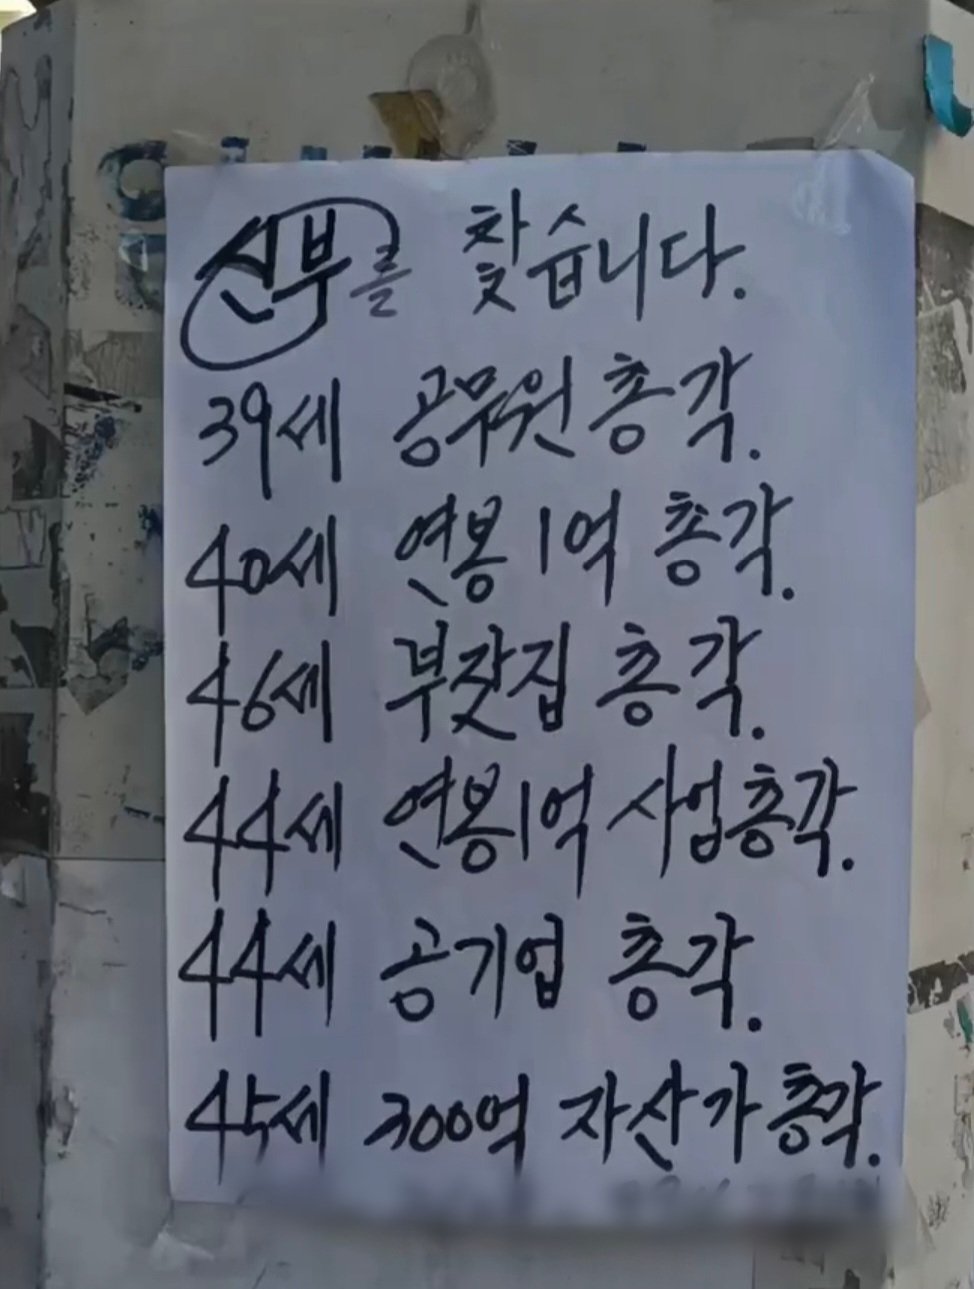 신부를 찾습니다.
39세 공무원 총각.
40세 연봉 1억 총각.
46세 부잣집 총각.
44세 연봉1억 사업총각.
44세 공기업 총각.
45세 300억 자산가 총각.